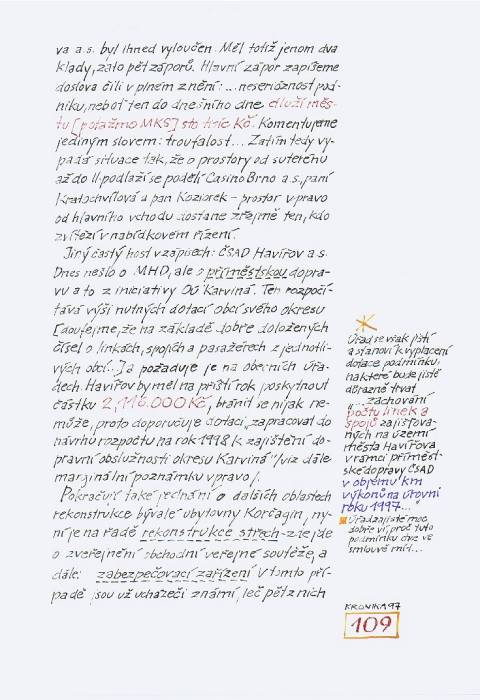 va a.s. byl ihned vyloučen. Měl totiž jenom dva
klady, zato pět záporů. Hlavní zápor zapíšeme
doslova čili v plném znění: ... neserióznost pod-
niku, neboť ten do dnešního dne dluží měs-
tu [potažmo MKS] sto tisíc Kč. Komentujeme
jediným slovem: troufalost... Zatím tedy vy-
padá situace tak, že o prostory od suterénu
až do II. podlaží se podělí Casino Brno a.s., paní
Kratochvílová a pan Koziorek – prostor vpravo
od hlavního vchodu dostane zřejmě ten, kdo
zvítězí v nabídkovém řízení.
Jiný častý host v zápisech: ČSAD Havířov a.s.
Dnes nešlo o MHD, ale o příměstskou dopra-
vu a to z iniciativy OÚ Karviná. Ten rozpočí-
tává výši nutných dotací obcí svého okresu
[doufejme, že na základě dobře doložených
čísel o linkách, spojích a pasažérech z jednotli-
vých obcí...] a požaduje je na obecních úřa-
dech. Havířov by měl na příští rok poskytnout
částku 2,116.000 Kč, bránit se nijak ne-
může, proto doporučuje dotaci „zapracovat do
návrhu rozpočtu na rok 1998 k zajištění do-
pravní obslužnosti okresu Karviná" /viz dále
marginální poznámku vpravo/.
Pokračují také jednání o dalších oblastech
rekonstrukce bývalé ubytovny Korčagin, ny-
ní je na řadě rekonstrukce střech – zde jde
o zveřejnění obchodní veřejné soutěže, a
dále: zabezpečovací zařízení v tomto pří-
padě jsou už uchazeči známí, leč pět z nich
Úřad se však jistí
a stanoví k vyplacení
dotace podmínku
na které bude jistě
důrazně trvat
„... zachování
počtu linek a
spojů zajišťova-
ných na území
města Havířova
v rámci příměst-
ské dopravy ČSAD
v objemu km
výkonů na úrovni
roku 1997...
Úřad zajisté moc
dobře ví, proč tuto
podmínku chce ve
smlouvě mít...
KRONIKA 97
109